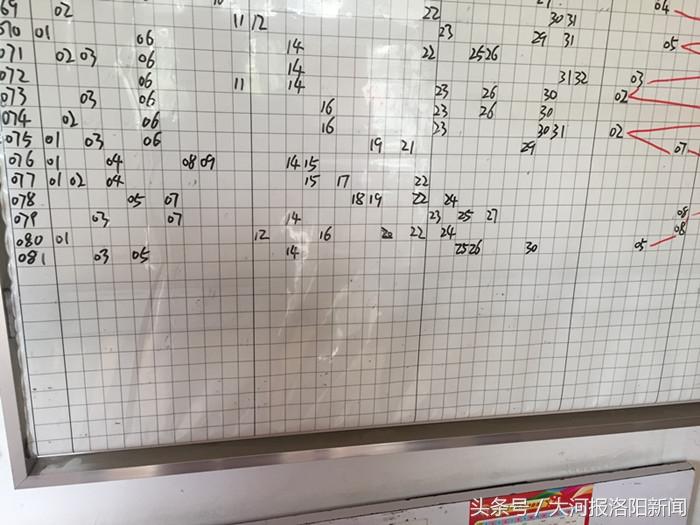 22 30 31 04
69 02 11 12 23 29 31 05
070 01 06 14 22 25 26
071 02 03 06 14 31 32 03
072 06 11 14 23 26 30 02
073 03 06 16 23 26 30
074 02 06 16 23 30 31 02
075 01 03 06 19 21 29 07
076 01 04 08 09 14 15
077 01 02 04 15 17 22
078 05 07 18 19 22 24
079 03 07 14 23 25 27 08
080 01 12 16 20 22 24 08
081 03 05 14 25 26 30 05
头条号/大河报洛阳新闻